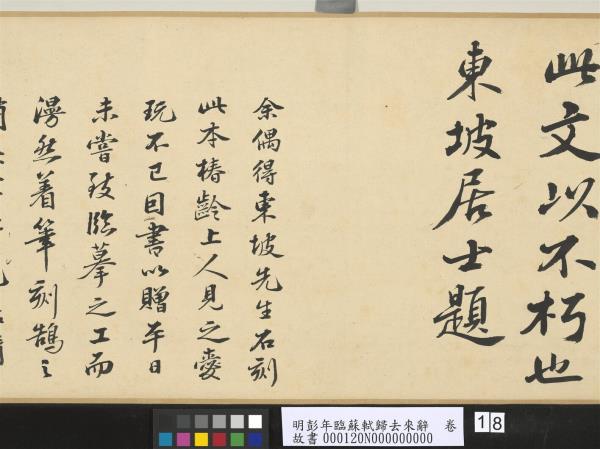 此文以不朽也
東坡居士題
余偶得東坡先生石刻
此本椿齡上人見之愛
玩不已因書以贈平日
未嘗致臨摹之工而
漫然着筆刻鵠之
明彭年臨蘇軾歸去來辭 卷
故書 000120N000000000
18